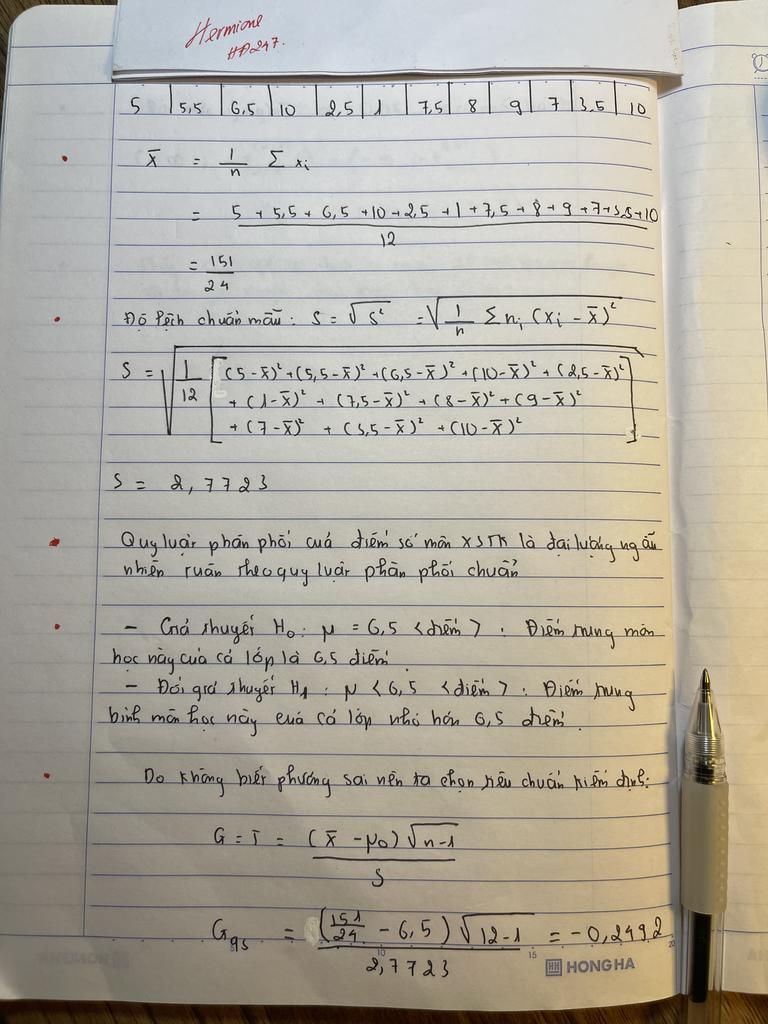 Hermione
HP247.
5 | 5,5 | 6,5 | 10 | 2,5 | 1 | 7,5 | 8 | 9 | 7 | 3,5 | 10
x̄ = 1/n Σ xᵢ
= (5 + 5,5 + 6,5 + 10 + 2,5 + 1 + 7,5 + 8 + 9 + 7 + 3,5 + 10)/12
= 151/24
Độ lệch chuẩn mẫu: S = √S² = √(1/n Σ nᵢ (xᵢ - x̄)²)
S = √(1/12 [(5-x̄)² + (5,5-x̄)² + (6,5-x̄)² + (10-x̄)² + (2,5-x̄)²
+ (1-x̄)² + (7,5-x̄)² + (8-x̄)² + (9-x̄)²
+ (7-x̄)² + (3,5-x̄)² + (10-x̄)²])
S = 2,7723
Quy luật phân phối của điểm số môn XSTK là đại lượng ngẫu
nhiên tuân theo quy luật phân phối chuẩn
- Giả thuyết H₀: μ = 6,5 <điểm> : Điểm trung môn
học này của cả lớp là 6,5 điểm.
- Đối giả thuyết H₁ : μ < 6,5 <điểm> : Điểm trung
bình môn học này của cả lớp nhỏ hơn 6,5 điểm.
Do không biết phương sai nên ta chọn tiêu chuẩn kiểm định:
G = T = (x̄ - μ₀)√(n-1) / S
G_qs = (151/24 - 6,5)√(12-1) / 2,7723 = -0,2492
10 15 20
HONG HA